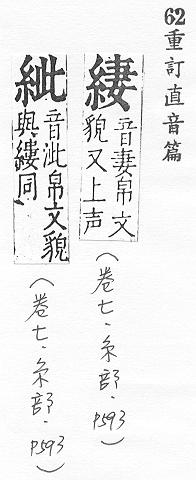 62重訂直音篇
緀
音妻帛文
貌又上声
(卷七·糸部·P593)
紪
音泚帛文貌
與緀同
(卷七·糸部·P593)